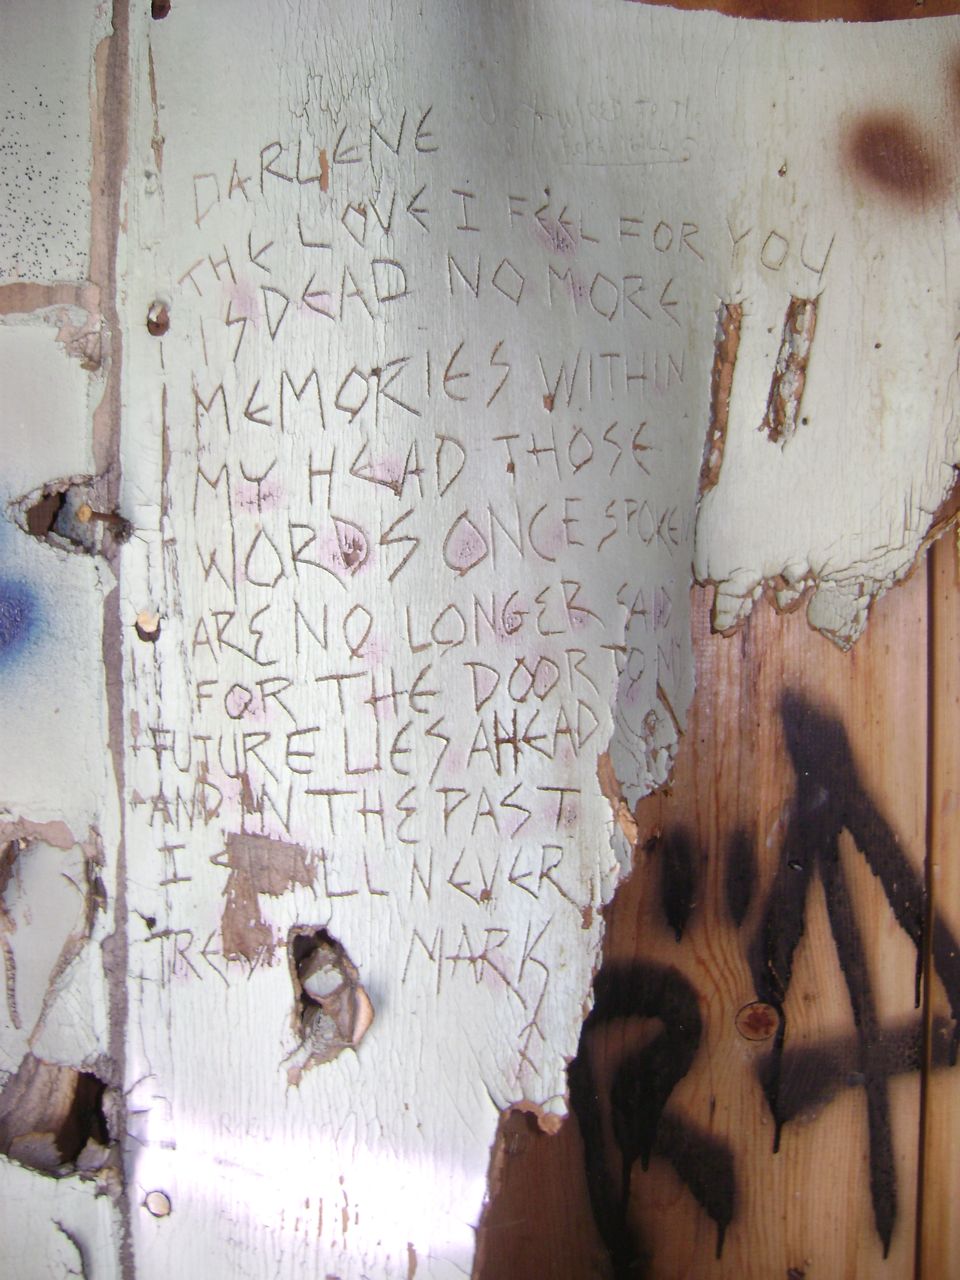 DARLENE
THE LOVE I FEEL FOR YOU
IS DEAD NO MORE
MEMORIES WITHIN
MY HEAD THOSE
WORDS ONCE SPOKEN
ARE NO LONGER SAID
FOR THE DOOR TO MY
FUTURE LIES AHEAD
AND IN THE PAST
I NEVER
TREAD MARK
X
X
RA